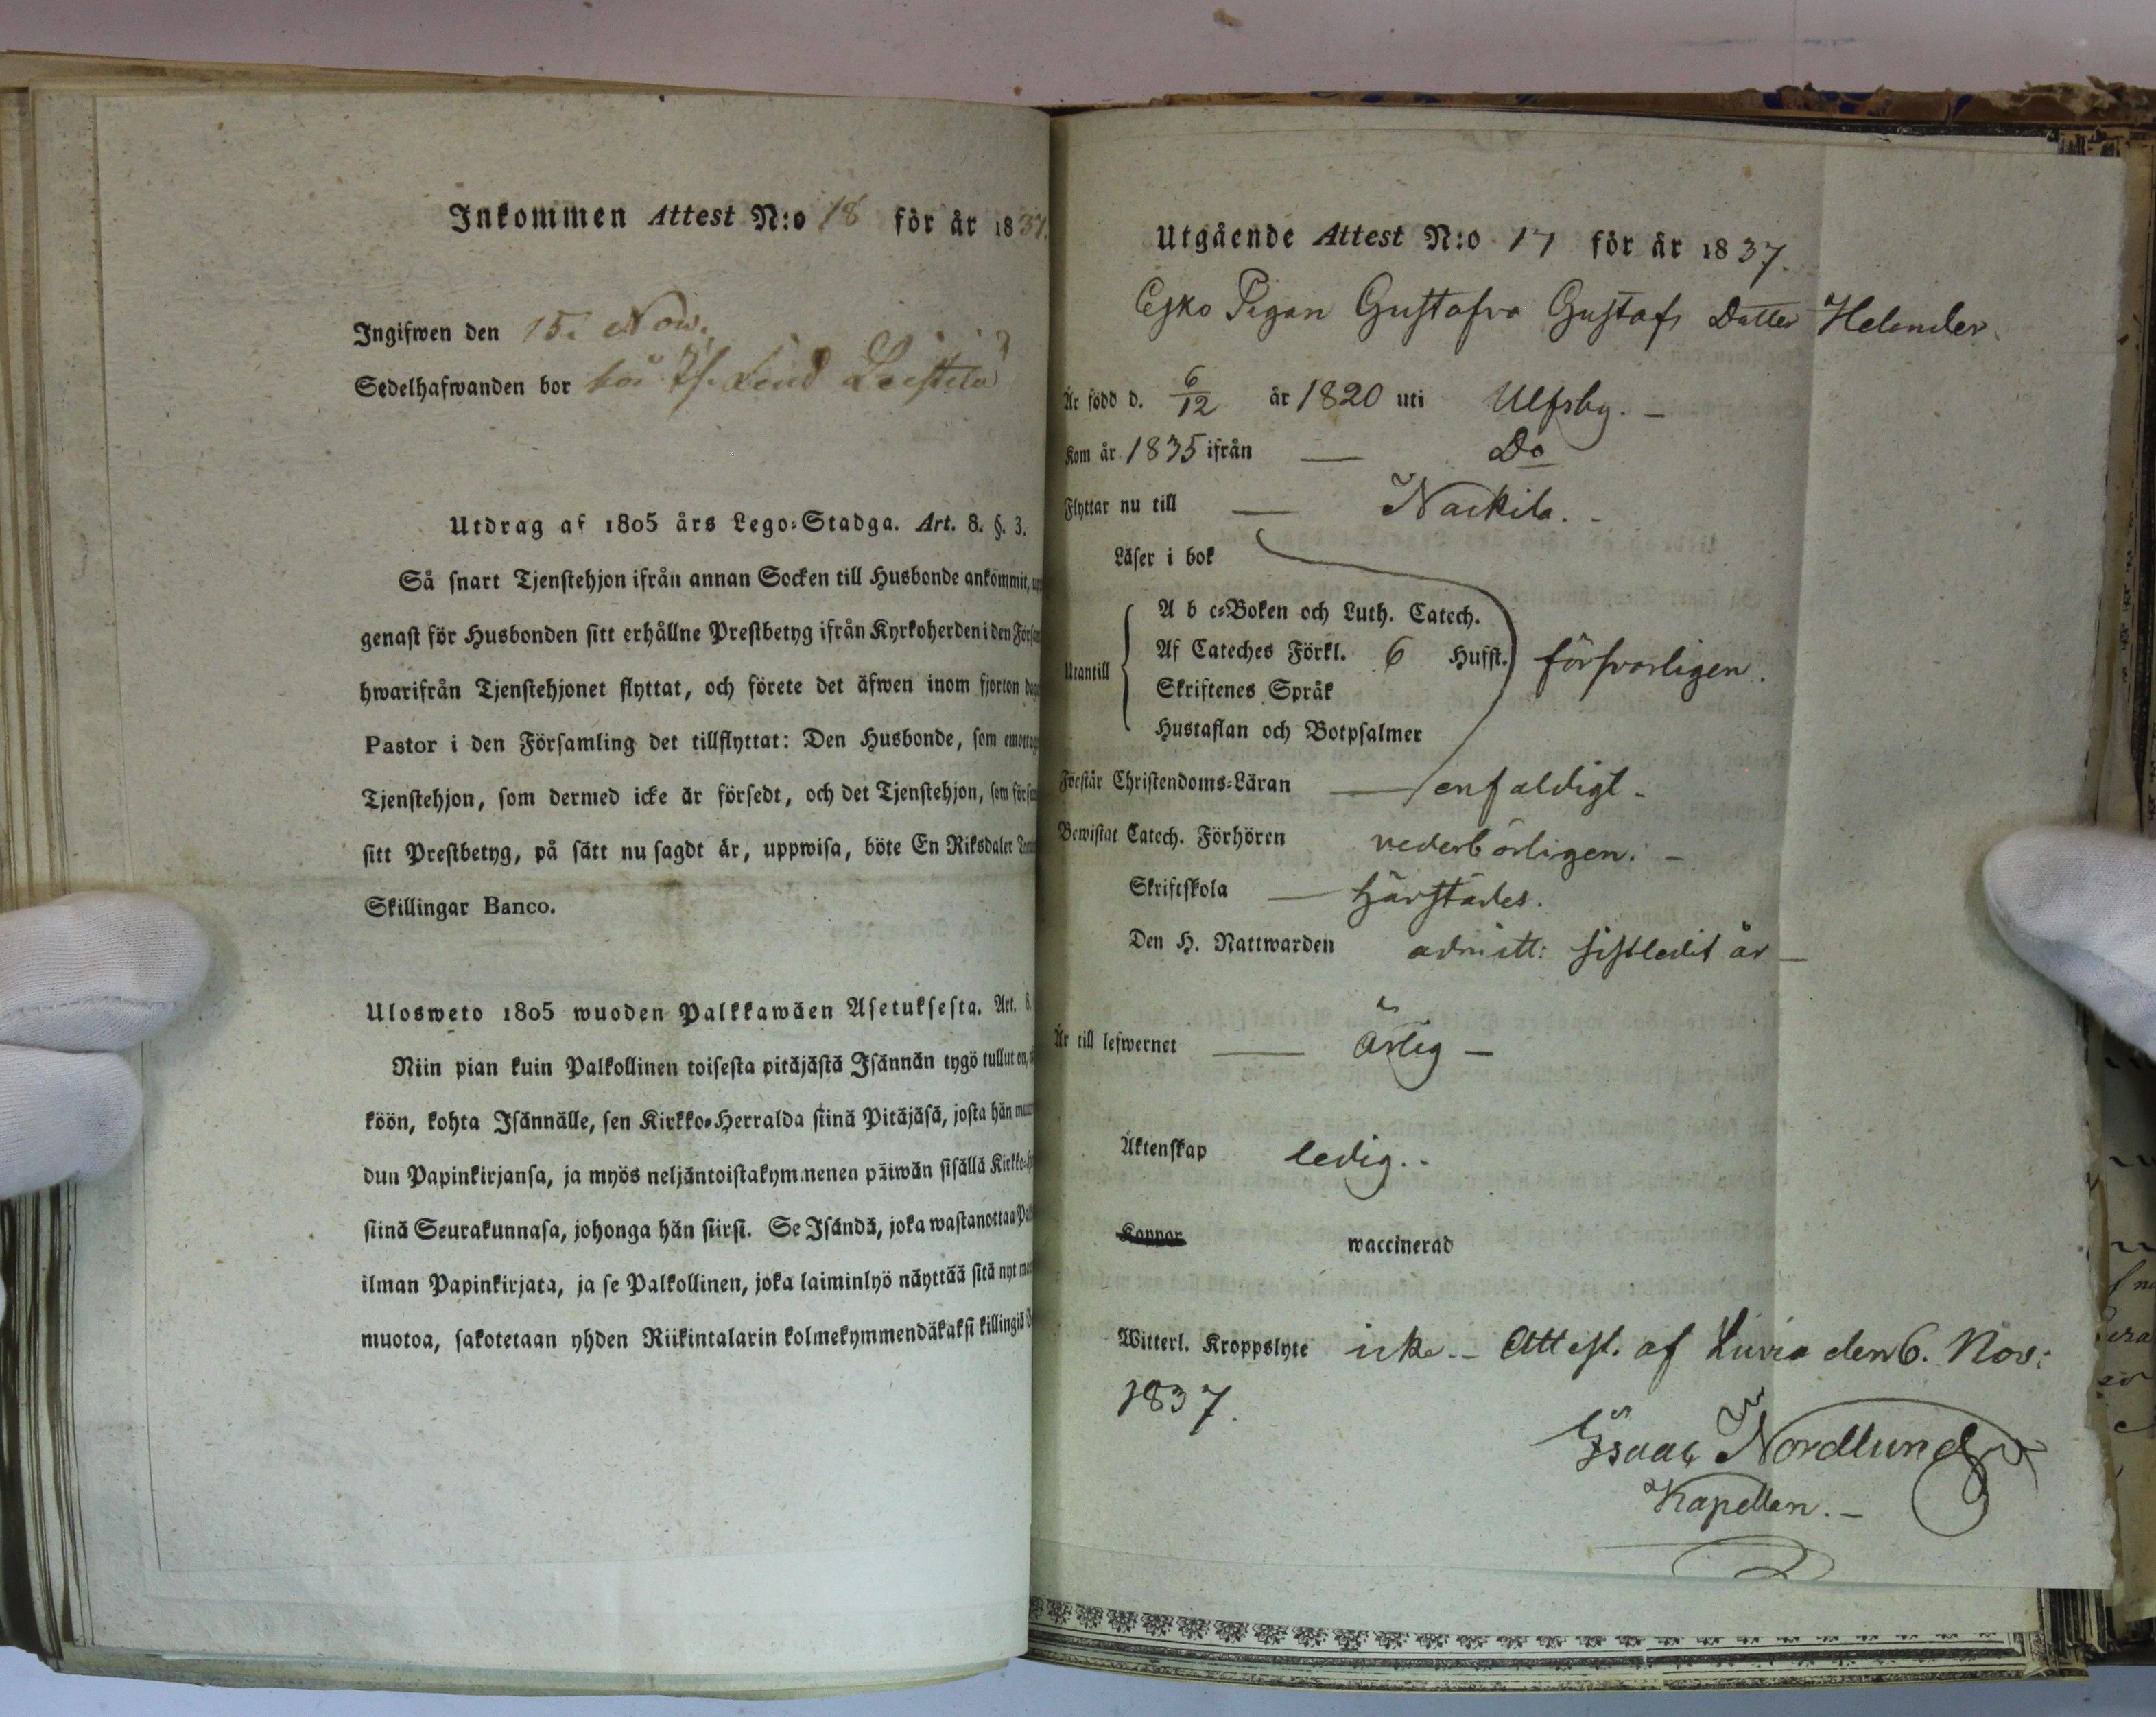 Inkommen Attest N:o 18 för år 1837.
Ingifwen den 15. Nov.
Sedelhafwanden bor hos
Utdrag af 1805 års Lego-Stadga. Art. 8. §. 3.
Så snart Tjenstehjon ifrån annan Socken till Husbonde ankommit,
genast för Husbonden sitt erhållne Prestbetyg ifrån Kyrkoherden i den
hwarifrån Tjenstehjonet flyttat, och förete det äfwen inom fjorton
Pastor i den Församling det tillflyttat: Den Husbonde, som
Tjenstehjon, som dermed icke är försedt, och det Tjenstehjon, som
sitt Prestbetyg, på sätt nu sagdt är, uppwisa, böte En Riksdaler
Skillingar Banco.
Ulosweto 1805 wuoden Palkkawäen Asetuksesta. Art. 8.
Niin pian kuin Palkollinen toisesta pitäjästä Isännän tygö tullut on,
köön, kohta Isännälle, sen Kirkko-Herralda siinä Pitäjäsä, josta hän
dun Papinkirjansa, ja myös neljäntoistakymmenen päiwän sisällä
siinä Seurakunnasa, johonga hän siirsi. Se Isändä, joka wastanottaa
ilman Papinkirjata, ja se Palkollinen, joka laiminlyö näyttää sitä nyt
muotoa, sakotetaan yhden Riikintalarin kolmekymmendäkaksi killingiä
Utgående Attest N:o 17 för år 1837.
Pigan Gustafva Gustafs Datter Helander.
Är född d. 6/12 år 1820 uti Ulfsby. –
Kom år 1835 ifrån — Do
Flyttar nu till — Nackila. –
Läser i bok
A b c-Boken och Luth. Catech.
Af Cateches Förkl. 6 Hufst.
Utantill försvarligen.
Skriftenes Språk
Hustaflan och Botpsalmer
Förstår Christendoms-Läran — enfaldigt –
Bewistat Catech. Förhören vederbörligen. –
Skriftskola — härstädes.
Den H. Nattwarden admitt: sistledit år –
Är till lefwernet — ärlig –
Äktenskap ledig. –
Koppor waccinerad
Witterl. Kroppslyte icke. – Attest. af Luvia den 6. Nov:
1837.
Isaac Nordlund
Kapellan. –